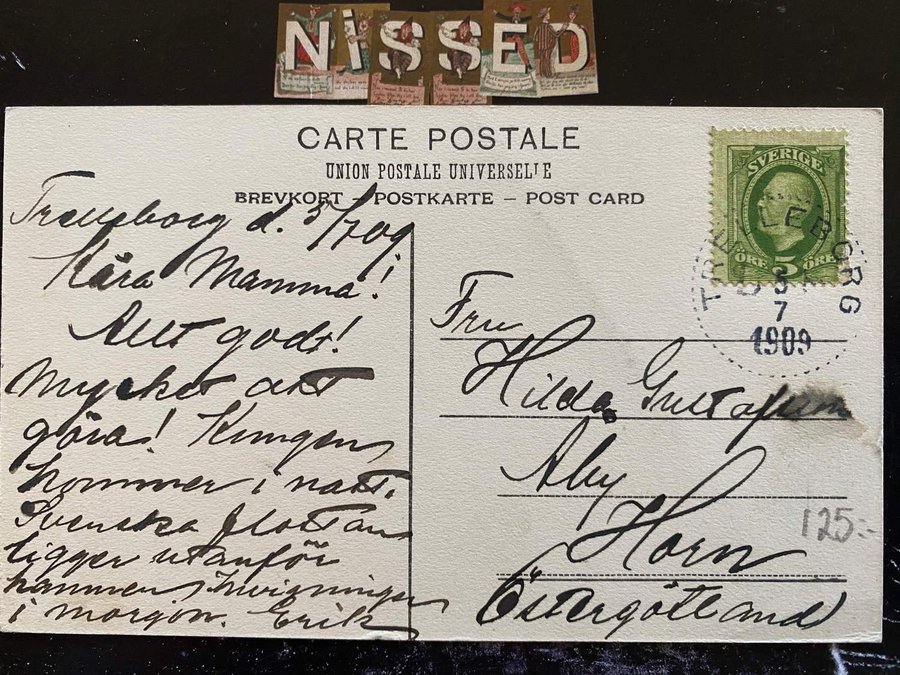 NISSED
CARTE POSTALE
UNION POSTALE UNIVERSELLE
BREVKORT – POSTKARTE – POST CARD
SVERIGE
ÖRE 5 ÖRE
TRELLEBORG
5
7
1909
Trelleborg d. 5/7 09
Kära Mamma!
Allt godt!
Mycket att
göra! Kungen
kommer i natt.
Svenska flottan
ligger utanför
hamnen, invigningen
i morgon. Erik
Fru
Hilda Gustafsson
Åby
Horn
Östergötland
125:-